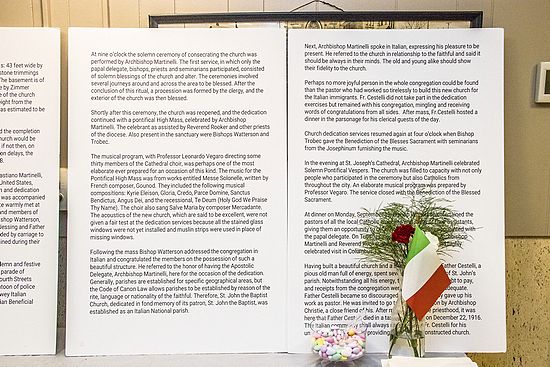 s: 43 feet wide by
stone trimmings
The basement is of
by Zimmer
e of the church
ight from the
was estimated to be
d the completion
church would be
if not then, on
en delays, the
8.
astiano Martinelli,
United States,
n and dedication
was accompanied
e warmly met at
nd members of
Bishop Watterson,
Blessing and Father
ded by carriage to
ined during their
emn and festive
parade of
ourth Streets
tion of police
wey Italian
ian Beneficial
At nine o'clock the solemn ceremony of consecrating the church was
performed by Archbishop Martinelli. The first service, in which only the
papal delegate, bishops, priests and seminarians participated, consisted
of solemn blessings of the church and alter. The ceremonies involved
several journeys around and across the area to be blessed. After the
conclusion of this ritual, a procession was formed by the clergy, and the
exterior of the church was then blessed.
Shortly after this ceremony, the church was reopened, and the dedication
continued with a pontifical High Mass, celebrated by Archbishop
Martinelli. The celebrant as assisted by Reverend Rooker and other priests
of the diocese. Also present in the sanctuary were Bishops Watterson and
Trobec.
The musical program, with Professor Leonardo Vegaro directing some
thirty members of the Cathedral choir, was perhaps one of the most
elaborate ever prepared for an occasion of this kind. The music for the
Pontifical High Mass was from works entitled Messe Solonelle, written by
French composer, Gounod. They included the following musical
compositions: Kyrie Eleison, Gloria, Credo, Parce Domine, Sanctus
Bendictus, Angus Dei, and the recessional, Te Deum (Holy God We Praise
Thy Name). The choir also sang Salve Maria by composer Mercadante.
The acoustics of the new church, which are said to be excellent, were not
given a fair test at the dedication services because all the stained glass
windows were not yet installed and muslin strips were used in place of
missing windows.
Following the mass Bishop Watterson addressed the congregation in
Italian and congratulated the members on the possession of such a
beautiful structure. He referred to the honor of having the Apostolic
Delegate, Archbishop Martinelli, here for the occasion of the dedication.
Generally, parishes are established for specific geographical areas, but
the Code of Canon Law allows parishes to be established by reason of the
rite, language or nationality of the faithful. Therefore, St. John the Baptist
Church, dedicated in fond memory of its patron, St. John the Baptist, was
established as an Italian National parish.
Next, Archbishop Martinelli spoke in Italian, expressing his pleasure to be
present. He referred to the church in relationship to the faithful and said it
should be always in their minds. The old and young alike should show
their fidelity to the church.
Perhaps no more joyful person in the whole congregation could be found
than the pastor who had worked so tirelessly to build this new church for
the Italian immigrants. Fr. Cestelli did not take part in the dedication
exercises but remained with his congregation, mingling and receiving
words of congratulations from all sides. After mass, Fr. Cestelli hosted a
dinner in the parsonage for his clerical guests of the day.
Church dedication services resumed again at four o'clock when Bishop
Trobec gave the Benediction of the Blessed Sacrament with seminarians
from the Josephinum furnishing the music.
In the evening at St. Joseph's Cathedral, Archbishop Martinelli celebrated
Solemn Pontifical Vespers. The church was filled to capacity with not only
people who participated in the ceremony but also Catholics from
throughout the city. An elaborate musical program was prepared by
Professor Vegaro. The service closed with the Benediction of the Blessed
Sacrament.
At dinner on Monday, September
pastors of all the local Catholic
giving them an opportunity to
papal delegate. On T
Martinelli and Reverend
celebrated visit in Colum
Having built a beautiful church and a Father Cestelli, a
pious old man full of energy, spent of St. John's
parish. Notwithstanding all his energy, to pay,
and receipts from the congregation were adequate.
Father Cestelli became so discouraged gave up his
work as pastor. He was invited to go to by Archbishop
Christie, a close friend of his. After priesthood, it was
here that Father Cestelli died in a ta on December 22, 1916.
The Italian community shall always Fr. Cestelli for his
providing constructed church.